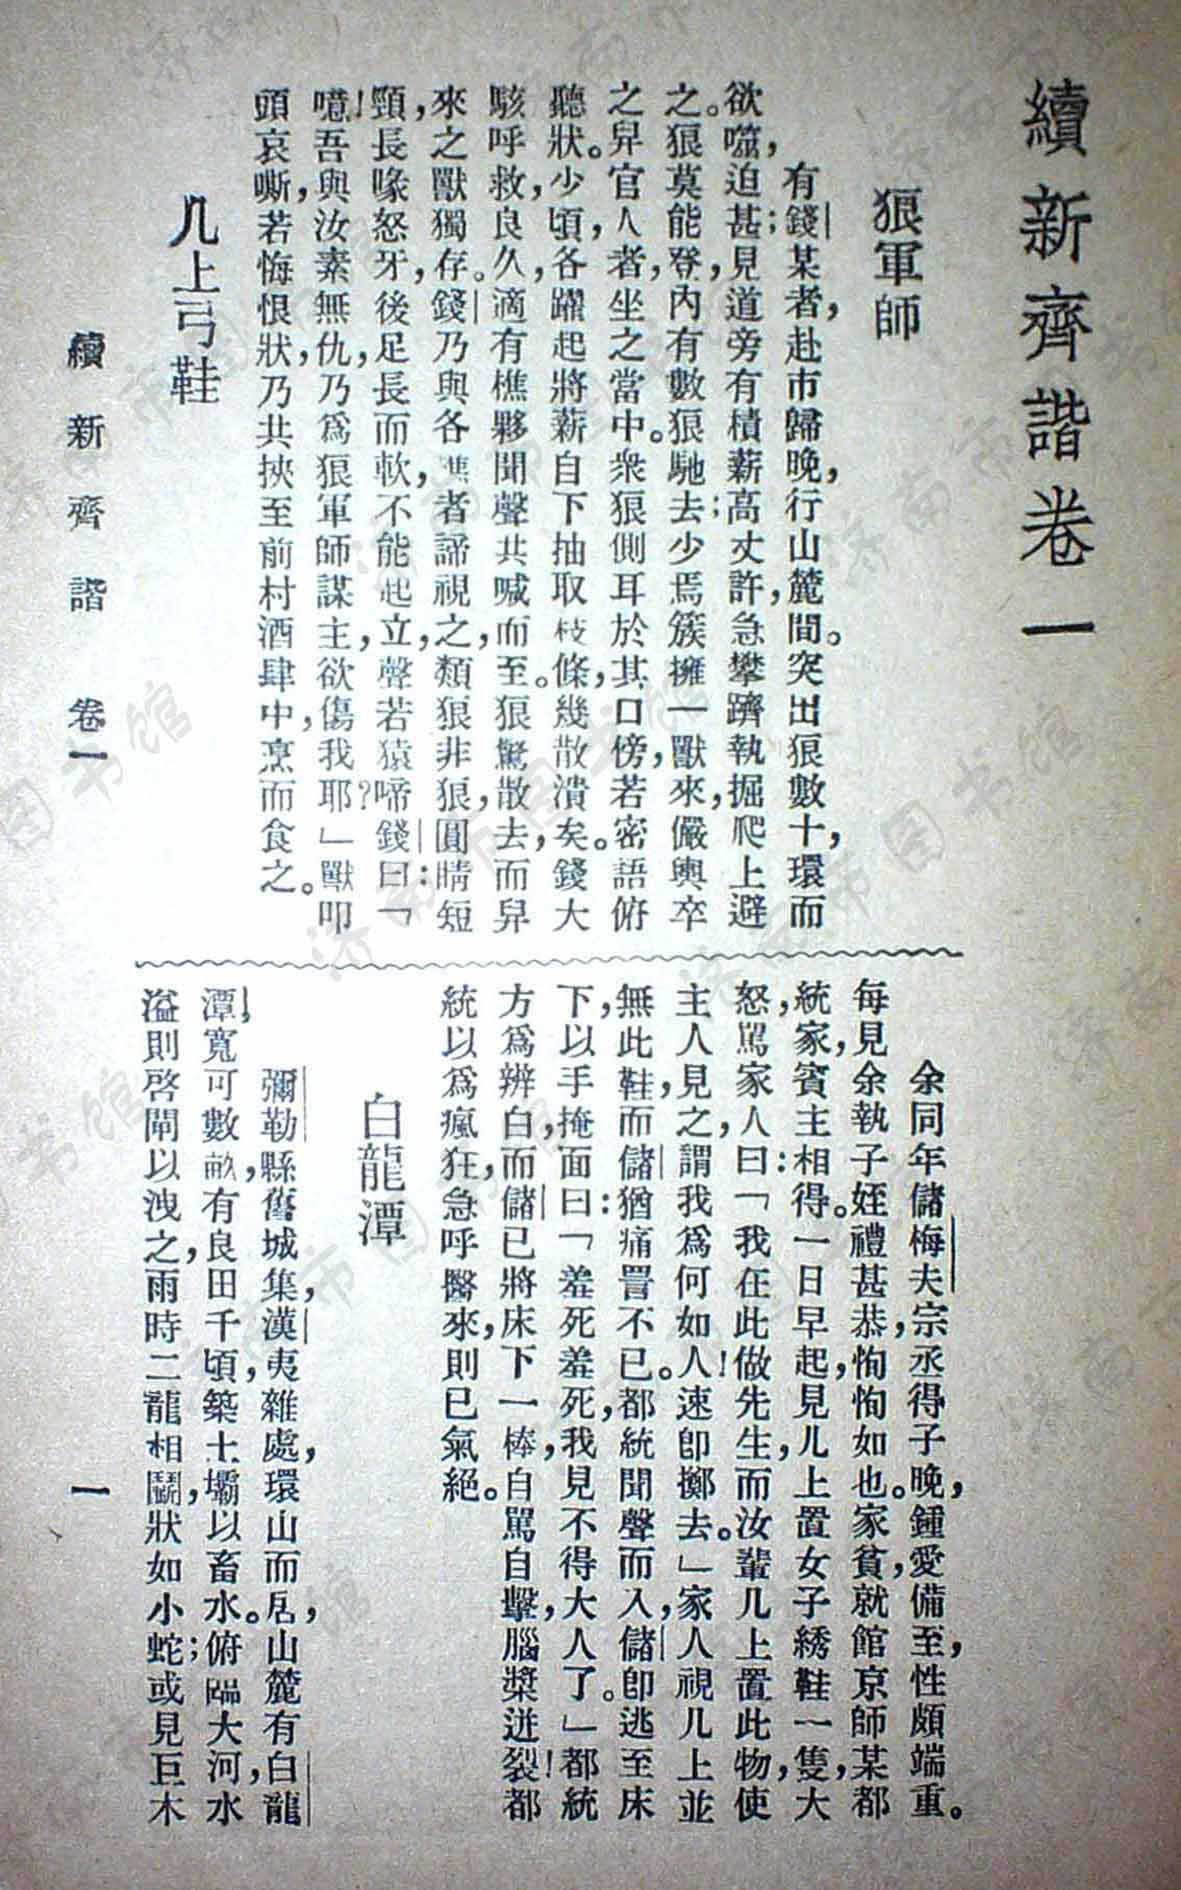 續新齊諧卷一
狼軍師
有錢某者,赴市歸晚,行山麓間。突出狼數十,環而
欲噬,迫甚;見道旁有積薪高丈許,急攀躋執掘爬上避
之。狼莫能登,內有數狼馳去;少焉簇擁一獸來,儼輿卒
之舁官人者,坐之當中。衆狼側耳於其口傍,若密語俯
聽狀。少頃,各躍起將薪自下抽取枝條,幾散潰矣。錢大
駭呼救,良久,適有樵夥聞聲共喊而至。狼驚散去,而舁
來之獸獨存。錢乃與各樵者諦視之,類狼非狼,圓睛短
頸,長喙怒牙,後足長而軟,不能起立,聲若猿啼。錢曰:「
噫!吾與汝素無仇,乃為狼軍師謀主,欲傷我耶?」獸叩
頭哀嘶,若悔恨狀,乃共挾至前村酒肆中,烹而食之。
几上弓鞋
余同年儲梅夫宗丞得子晚,鍾愛備至,性頗端重。
每見余執子姪禮甚恭,恂恂如也。家貧,就館京師某都
統家,賓主相得。一日早起,見几上置女子綉鞋一隻,大
怒,駡家人曰:「我在此做先生,而汝輩几上置此物,使
主人見之,謂我為何如人!速卽擲去。」家人視几上並
無此鞋,而儲猶痛詈不已。都統聞聲而入,儲卽逃至床
下,以手掩面曰:「羞死羞死,我見不得大人了。」都統
方為辨白,而儲已將床下一棒,自駡自擊,腦漿迸裂!都
統以為瘋狂,急呼醫來,則已氣絕。
白龍潭
彌勒縣舊城集,漢夷雜處,環山而居,山麓有白龍
潭,寬可數畝,有良田千頃,築土壩以畜水。俯臨大河,水
溢則啓閘以洩之,雨時二龍相鬭,狀如小蛇;或見巨木
續新齊諧 卷一
一
济南市图书馆